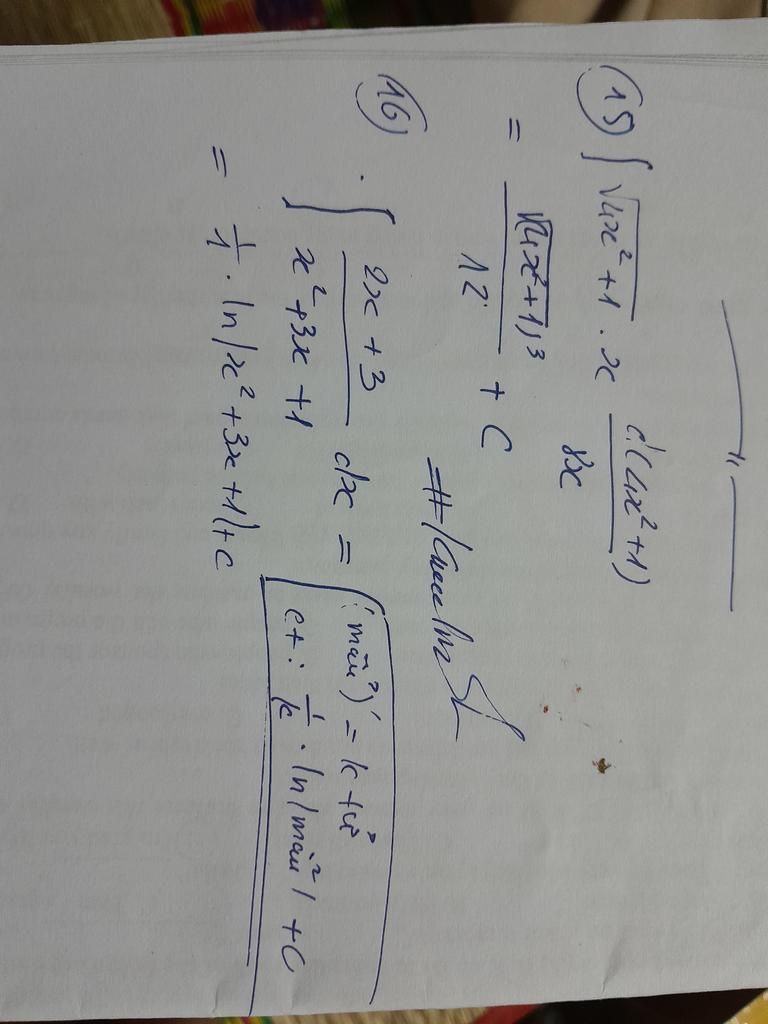 (15) ∫ √4x²+1 . x d(4x²+1)/8x
= √(4x²+1)³/12 + C
(16) . ∫ 2x+3/x²+3x+1 dx =
(mẫu)' = k tử
ct: 1/k . ln|mẫu| + C
= 1/1 . ln|x²+3x+1| + C